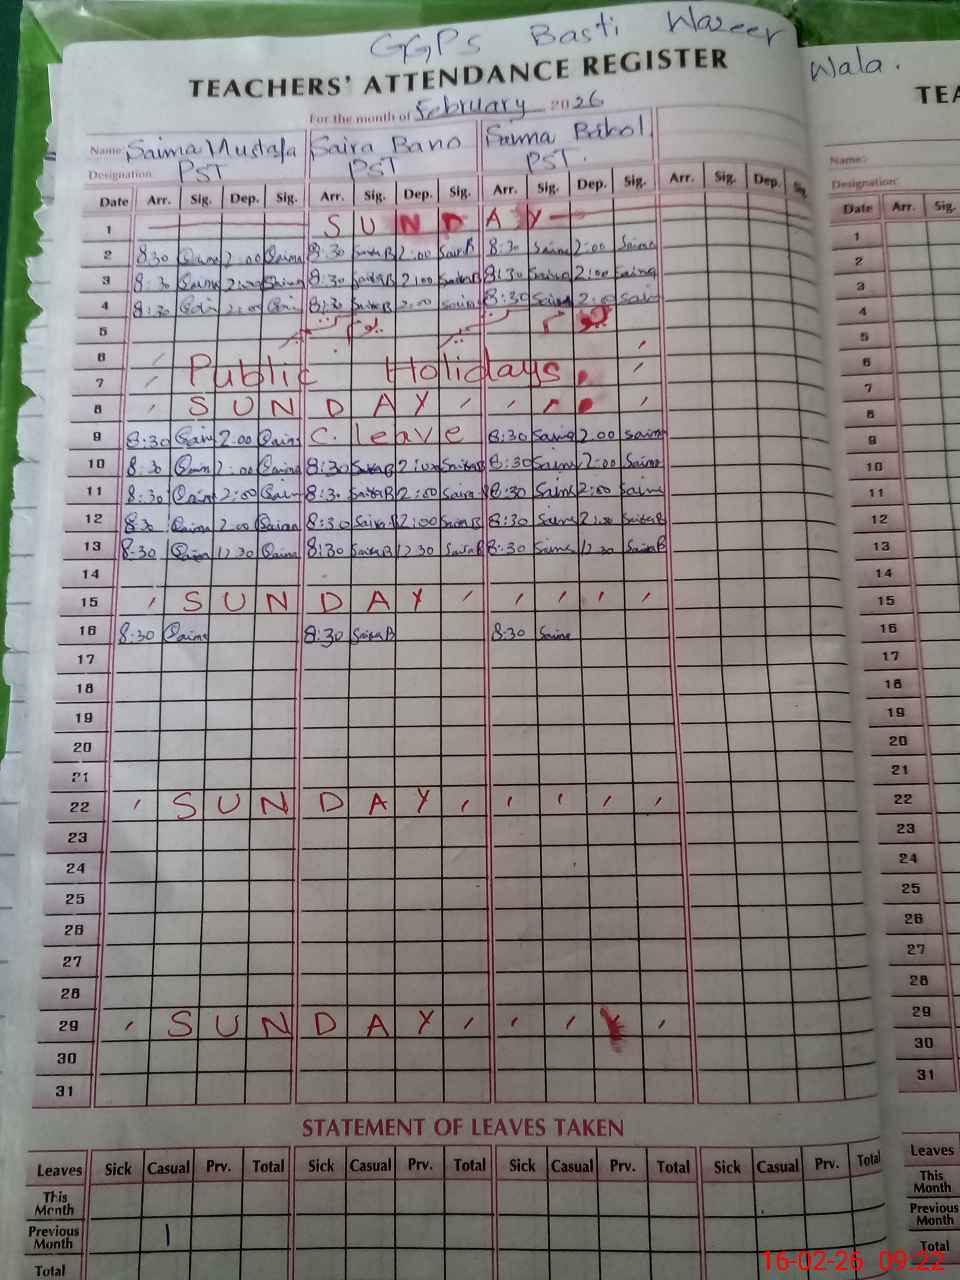 GGPS Basti Wazeer Wala.
TEACHERS' ATTENDANCE REGISTER
For the month of February 2026
Name: Saima Mustafa Saira Bano Saima Batool
Designation PST PST PST.
Date Arr. Sig. Dep. Sig. Arr. Sig. Dep. Sig. Arr. Sig. Dep. Sig. Arr. Sig. Dep. Sig.
1 SUNDAY
2 8:30 Saima 2:00 Saima 8:30 SairaB 2:00 SairB 8:30 Saima 2:00 Saima
3 8:30 Saima 2:00 Saima 8:30 SairaB 2:00 SairaB 8:30 Saima 2:00 Saima
4 8:30 Sai 2:00 Sai 8:30 SairaB 2:00 Saira 8:30 Saima 2:00 Sai
5 یوم
6
7 Public Holidays.
8 SUNDAY
9 8:30 Saim 2.00 Saima C. leave 8:30 Saima 2.00 Saima
10 8:30 Saima 2:00 Saima 8:30 SairaB 2:00 SairaB 8:30 Saima 2:00 Saima
11 8:30 Saima 2:00 Saim 8:30 SairaB 2:00 Saira 8:30 Saima 2:00 Saima
12 8:30 Saima 2:00 Saima 8:30 Saira 2:00 SairaB 8:30 Saima 2:00 SairaB
13 8:30 Saima 12:30 Saima 8:30 SairaB 12:30 SairaB 8:30 Saima 12:30 SairaB
14
15 SUNDAY
16 8:30 Saima 8:30 SairaB 8:30 Saima
17
18
19
20
21
22 SUNDAY
23
24
25
26
27
28
29 SUNDAY
30
31
STATEMENT OF LEAVES TAKEN
Leaves Sick Casual Prv. Total Sick Casual Prv. Total Sick Casual Prv. Total Sick Casual Prv. Total
This Month
Previous Month 1
Total
TEA
Name:
Designation:
Date Arr. Sig.
1
2
3
4
5
6
7
8
9
10
11
12
13
14
15
16
17
18
19
20
21
22
23
24
25
26
27
28
29
30
31
Leaves
This Month
Previous Month
Total
16-02-26 09:22